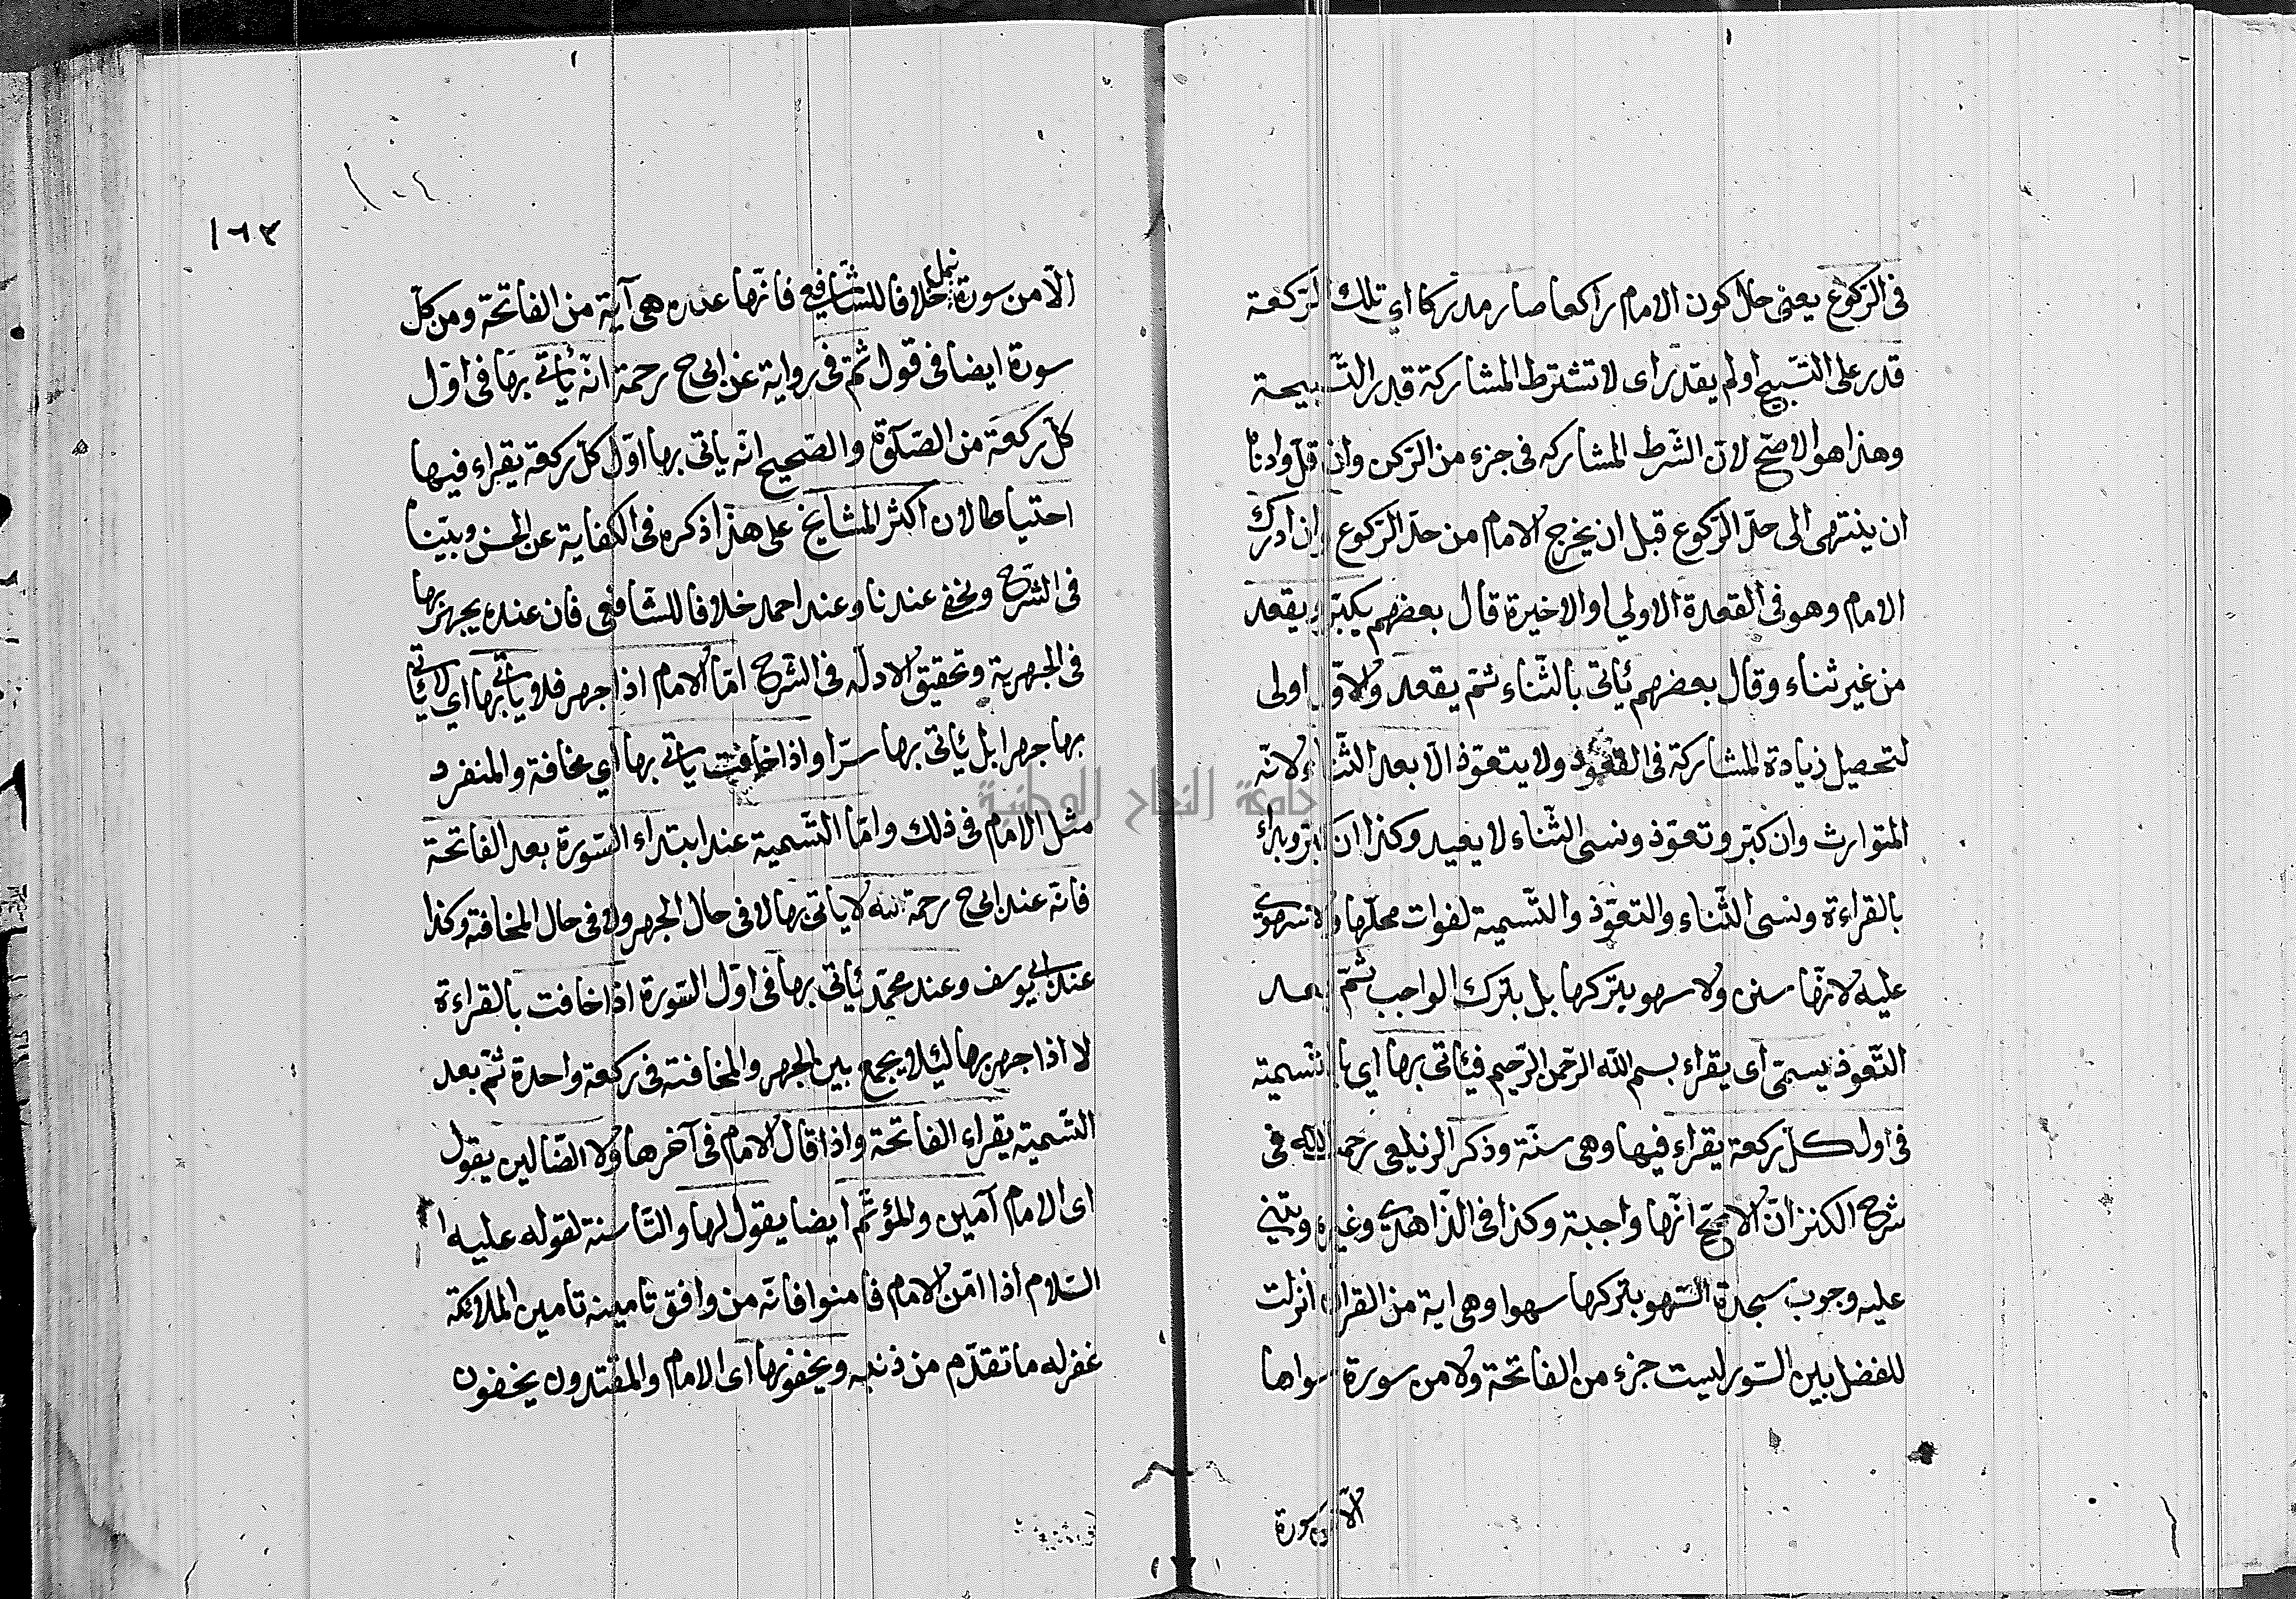 في الركوع يعنى حال كون الامام راكعا صار مدركا اي تلك الركعة
قدر على التسبيح او لم يقدر اى لا تشترط المشاركة قدر التسبيحة
وهذا هو الاصح لان الشرط المشاركه فى جزء من الركن وان قل وادناه
ان ينتهى الى حد الركوع قبل ان يخرج الامام من حد الركوع وان ادرك
الامام وهو فى القعدة الاولي او الاخيرة قال بعضهم يكبر ويقعد
من غير ثناء وقال بعضهم ئاتى بالثناء ثم يقعد والاول اولى
لتحصيل زيادة المشاركة فى القعود ولا يتعوذ الا بعد الثناء لانه
المتوارث وان كبر وتعوذ ونسى الثناء لا يعيد وكذا ان كبر وبداء
بالقراءة ونسى الثناء والتعوذ والتسمية لفوات محلها ولا سهو
عليه لانها سنن ولا سهو بتركها بل بترك الواجب ثم بعد
التعوذ يسمى اى يقراء بسم الله الرحمن الرحيم فئاتى بها اي بالتسمية
فى اول كل ركعة يقراء فيها وهى سنة وذكر الزيلعى رحمه الله فى
شرح الكنز ان الاصح انها واجبة وكذا فى الزاهدى وغيره ويبتني
عليه وجوب سجدة السهو بتركها سهوا وهى اية من القران انزلت
للفضل بين السور ليست جزء من الفاتحة ولا من سورة سواها
الا من سورة
١٦٣
الا من سورة نمل خلافا للشافعي فانها عنده هى آية من الفاتحة ومن كل
سورة ايضا فى قول ثم فى رواية عن ابى ح رحمة انه ئاتي بها فى اول
كل ركعة من الصلوة والصحيح انه ياتى بها اول كل ركعة يقراء فيها
احتياطا لان اكثر المشايخ على هذا ذكره فى الكفاية عن الحسن وبينا
فى الشرح ويخفى عندنا وعند احمد خلافا للشافعى فان عنده يجهر بها
فى الجهرية وتحقيق الادله فى الشرح اما الامام اذا جهر فلا ياتي بها اي لا ئاتي
بها جهرا بل ئاتى بها سرا واذا خافت ياتي بها اي مخافة والمنفرد
مثل الامام فى ذلك واما التسمية عند ابتداء السورة بعد الفاتحة
فانه عند ابى ح رحمة الله لا ياتى بها لا فى حال الجهر ولا فى حال المخافته وكذا
عند ابي يوسف وعند محمد ئاتى بها فى اول السورة اذا خافت بالقراءة
لا اذا جهر بها لئلا يجمع بين الجهر والمخافتة فى ركعة واحدة ثم بعد
التسمية يقراء الفاتحة واذا قال الامام فى آخرها ولا الضالين يقول
اى الامام آمين والمؤتم ايضا يقول لها والتا سنة لقوله عليه
السلام اذا امن الامام فامنوا فانه من وافق تامينه تامين الملائكة
غفر له ما تقدم من ذنبه ويخفونها اى الامام والمقتدون يخفون
جامعة النجاح الوطنية